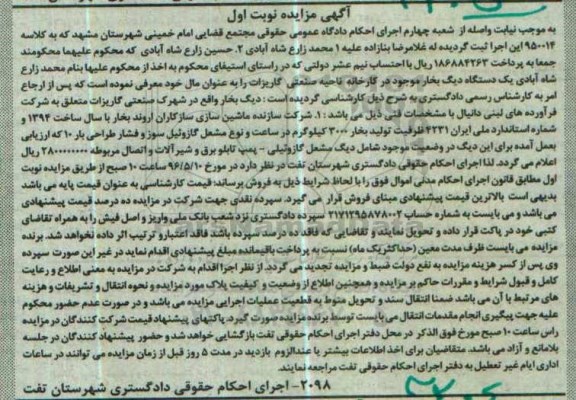 آگهی مزایده نوبت اول
به موجب نیابت واصله از شعبه چهارم اجرای احکام دادگاه عمومی حقوقی مجتمع قضایی امام خمینی شهرستان مشهد که به کلاسه
۹۵۰۰۱۴ این اجرا ثبت گردیده له غلامرضا بنازاده علیه ۱ محمد زارع شاه آبادی ۲. حسین زارع شاه آبادی که محکوم علیهما محکومند
جمعا به پرداخت ۱۸۶۸۸۴۲۶۳ ریال با احتساب نیم عشر دولتی که در راستای استیفای محکوم به اخذ از محکوم علیها بنام محمد زارع
شاه آبادی یک دستگاه دیگ بخار موجود در کارخانه ناحیه صنعتی گاریزات را به عنوان مال خود معرفی نموده است که پس از ارجاع
امر به کارشناس رسمی دادگستری به شرح ذیل کارشناسی گردیده است : دیگ بخار واقع در شهرک صنعتی گاریزات متعلق به شرکت
فرآورده های لبنی دانیال با مشخصات فنی ذیل می باشد : ۱. شرکت سازنده ماشین سازی سازکاران اروند بخار با سال ساخت ۱۳۹۴ و
شماره استاندارد ملی ایران ۴۲۳۱ ظرفیت تولید بخار ۳۰۰۰ کیلوگرم در ساعت و نوع مشعل گازوئیل سوز و فشار طراحی بار ۱۰ که ارزیابی
بعمل آمده برای این دیگ در وضعیت موجود شامل دیگ مشعل گازوئیلی - پمپ تابلو برق و شیرآلات و اتصال مربوطه ۲۸۰۰۰۰۰۰۰ ریال
اعلام می گردد. لذا اجرای احکام حقوقی دادگستری شهرستان تفت در نظر دارد در مورخ ۹۶/۵/۱۰ ساعت ۱۰ صبح از طریق مزایده نوبت
اول مطابق قانون اجرای احکام مدنی اموال فوق را با لحاظ شرایط ذیل به فروش برساند: قیمت کارشناسی به عنوان قیمت پایه می باشد
بدیهی است بالاترین قیمت پیشنهادی مبنای فروش قرار می گیرد. سپرده نقدی جهت شرکت در مزایده ده درصد قیمت پیشنهادی
می باشد و می بایست به شماره حساب ۲۱۷۱۲۹۵۸۷۸۰۰۲ سپرده دادگستری نزد شعب بانک ملی واریز و اصل فیش را به همراه تقاضای
کتبی خود در پاکت قرار داده و تحویل نمایند و تقاضایی که فاقد ده درصد سپرده باشد فاقد اعتبار و ترتیب اثر داده نخواهد شد. برنده
مزایده می بایست ظرف مدت معین (حداکثر یک ماه) نسبت به پرداخت باقیمانده مبلغ پیشنهادی اقدام نماید در غیر این صورت سپرده
وی پس از کسر هزینه مزایده به نفع دولت ضبط و مزایده تجدید می گردد. از نظر اجرا اقدام به شرکت در مزایده به معنی اطلاع و رعایت
کامل و قبول شرایط و مقررات حاکم بر مزایده و همچنین اطلاع از وضعیت و کیفیت پلاک مورد مزایده و نحوه انتقال و تشریفات و هزینه
های مرتبط با آن می باشد ضمنا انتقال سند و تحویل منوط به قطعیت عملیات اجرایی مزایده می باشد و در صورت عدم حضور محکوم
علیه جهت پیگیری انجام مقدمات انتقال می بایست توسط برنده مزایده صورت گیرد. پاکتهای پیشنهاد قیمت شرکت کنندگان در مزایده
راس ساعت ۱۰ صبح مورخ فوق الذکر در محل دفتر اجرای احکام حقوقی تفت بازگشایی خواهد شد و حضور پیشنهاد کنندگان در جلسه
بلامانع و آزاد می باشد. متقاضیان برای اخذ اطلاعات بیشتر یا عندالزوم بازدید در مدت ۵ روز قبل از زمان مزایده می توانند در ساعات
اداری ایام غیر تعطیل به دفتر اجرای احکام حقوقی تفت مراجعه نمایند.
۲۰۹۸ - اجرای احکام حقوقی دادگستری شهرستان تفت